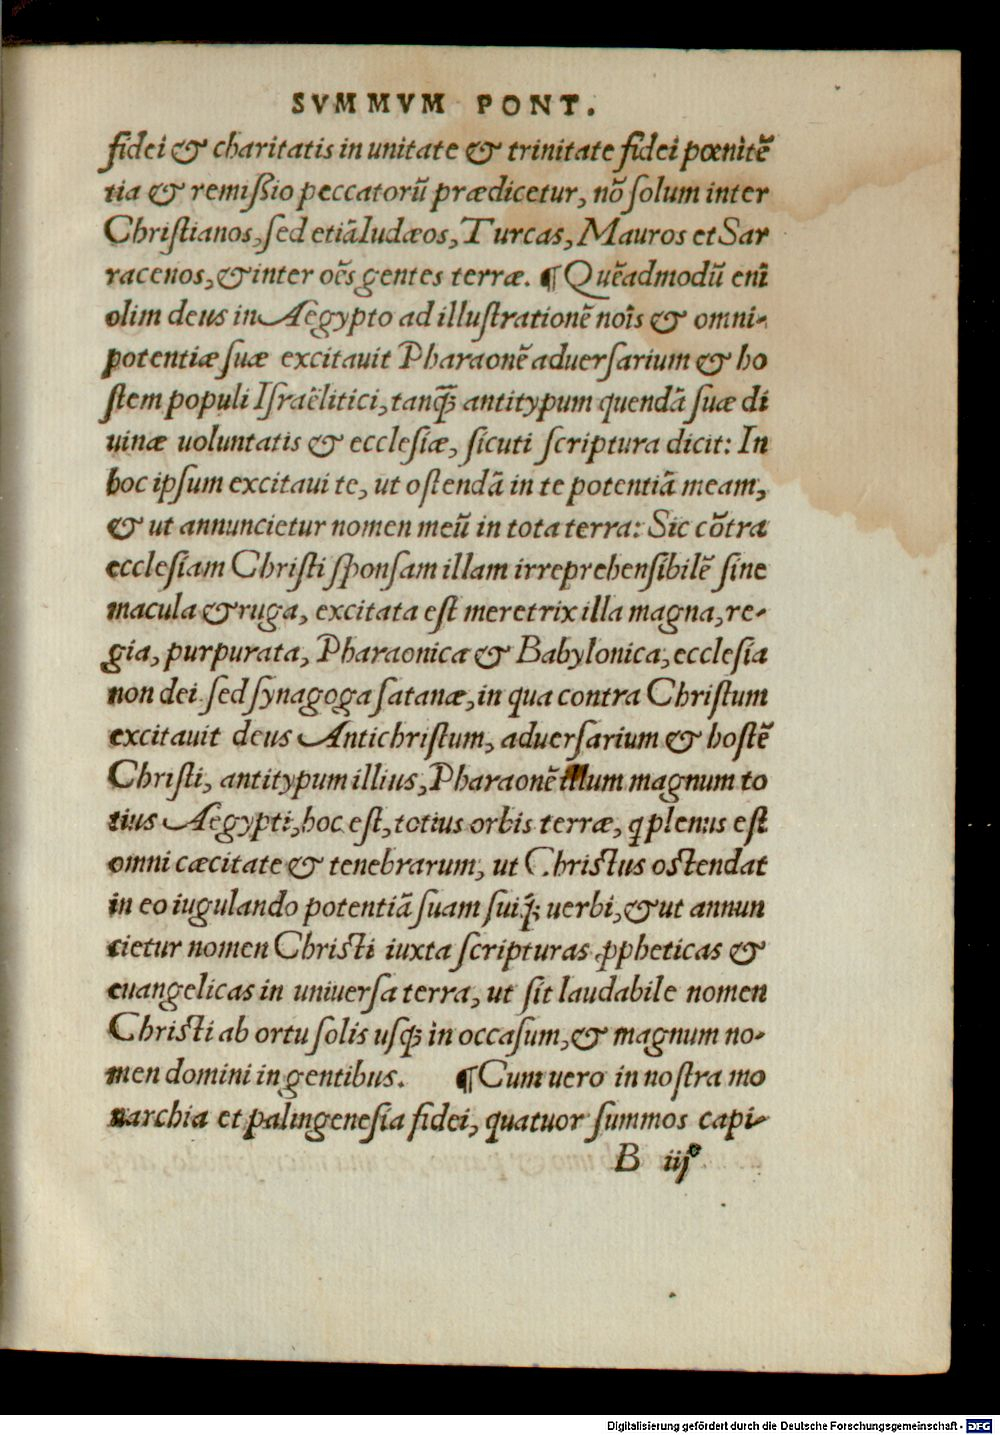 SVMMVM PONT.
fidei & charitatis in unitate & trinitate fidei pœnitẽ
tia & remißio peccatorũ prædicetur, nõ solum inter
Christianos, sed etiã Iudæos, Turcas, Mauros et Sar
racenos, & inter oẽs gentes terræ. ¶ Quẽadmodũ enĩ
olim deus in Aegypto ad illustrationẽ noĩs & omni-
potentiæ suæ excitauit Pharaonẽ aduersarium & ho
stem populi Israëlitici, tanq̃ antitypum quendã suæ di
uinæ uoluntatis & ecclesiæ, sicuti scriptura dicit: In
hoc ipsum excitaui te, ut ostendã in te potentiã meam,
& ut annuncietur nomen meũ in tota terra: Sic cõtra
ecclesiam Christi sponsam illam irreprehensibilẽ sine
macula & ruga, excitata est meretrix illa magna, re-
gia, purpurata, Pharaonica & Babylonica, ecclesia
non dei sed synagoga satanæ, in qua contra Christum
excitauit deus Antichristum, aduersarium & hostẽ
Christi, antitypum illius, Pharaonẽ illum magnum to
tius Aegypti, hoc est, totius orbis terræ, q plenus est
omni cæcitate & tenebrarum, ut Christus ostendat
in eo iugulando potentiã suam suiq; uerbi, & ut annun
cietur nomen Christi iuxta scripturas ꝓpheticas &
euangelicas in uniuersa terra, ut sit laudabile nomen
Christi ab ortu solis usq; in occasum, & magnum no-
men domini in gentibus. ¶ Cum uero in nostra mo
narchia et palingenesia fidei, quatuor summos capi-
B iij
Digitalisierung gefördert durch die Deutsche Forschungsgemeinschaft - DFG